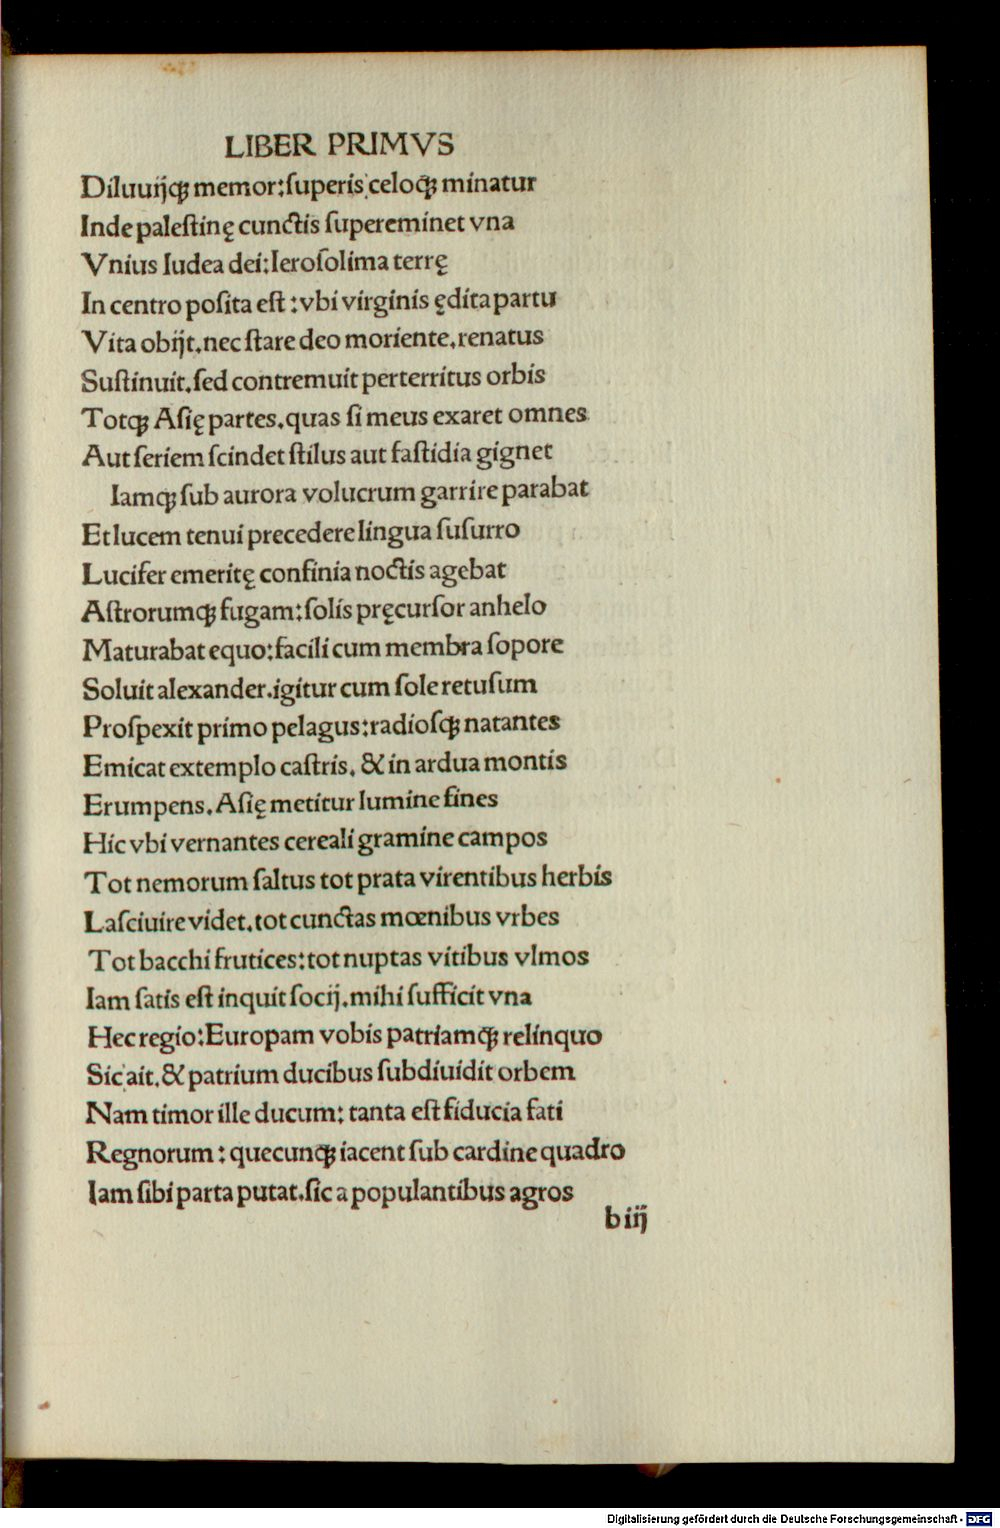 LIBER PRIMVS
Diluuijqꝫ memor:ſuperis celoqꝫ minatur
Inde paleſtinę cunctis ſupereminet vna
Vnius Iudea dei:Ieroſolima terrę
In centro poſita eſt:vbi virginis ędita partu
Vita obijt.nec ſtare deo moriente.renatus
Suſtinuit.ſed contremuit perterritus orbis
Totqꝫ Aſię partes.quas ſi meus exaret omnes
Aut ſeriem ſcindet ſtilus aut faſtidia gignet
Iamqꝫ ſub aurora volucrum garrire parabat
Et lucem tenui precedere lingua ſuſurro
Lucifer emeritę confinia noctis agebat
Aſtrorumqꝫ fugam:ſolis pręcurſor anhelo
Maturabat equo:facili cum membra ſopore
Soluit alexander.igitur cum ſole retuſum
Proſpexit primo pelagus:radioſqꝫ natantes
Emicat extemplo caſtris. & in ardua montis
Erumpens.Aſię metitur lumine fines
Hic vbi vernantes cereali gramine campos
Tot nemorum ſaltus tot prata virentibus herbis
Laſciuire videt.tot cunctas mœnibus vrbes
Tot bacchi frutices:tot nuptas vitibus vlmos
Iam ſatis eſt inquit ſocij.mihi ſufficit vna
Hec regio:Europam vobis patriamqꝫ relinquo
Sic ait.& patrium ducibus ſubdiuidit orbem
Nam timor ille ducum: tanta eſt fiducia fati
Regnorum: quecunqꝫ iacent ſub cardine quadro
Iam ſibi parta putat.ſic a populantibus agros
b iij
Digitalisierung gefördert durch die Deutsche Forschungsgemeinschaft - DFG